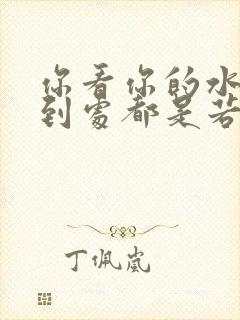 你看你的水
到處都是若
丁佩嵐